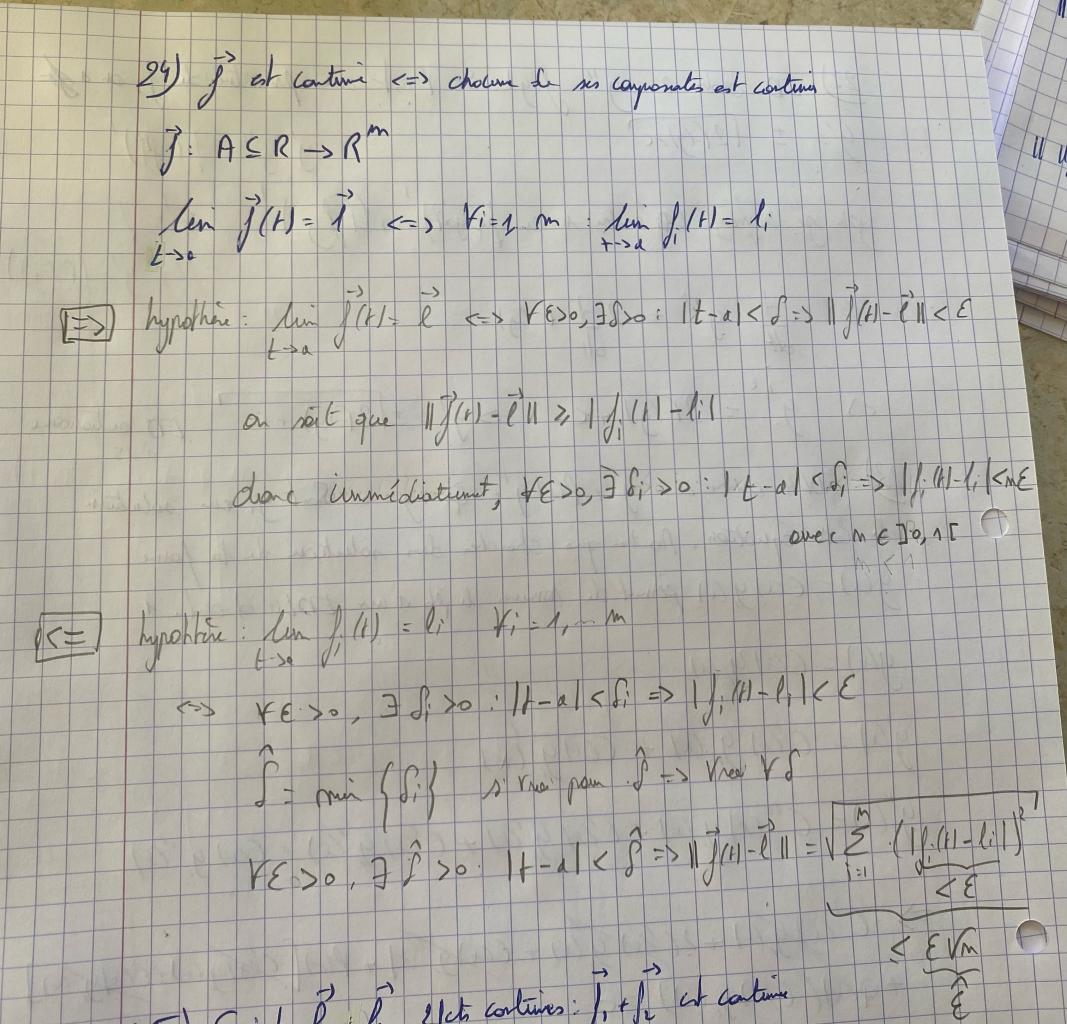 24) f⃗ est continue <=> chacune de ses composantes est continue
f⃗ : A ⊆ R → Rᵐ
lim t→a f⃗(t) = l⃗ <=> ∀i=1 m : lim t→a fᵢ(t) = lᵢ
=> hypothèse : lim t→a f⃗(t) = l⃗ <=> ∀ε>0, ∃δ>0 : |t-a| < δ => ||f⃗(t) - l⃗|| < ε
on sait que ||f⃗(t) - l⃗|| ⩾ |fᵢ(t) - lᵢ|
donc immédiatement, ∀ε>0, ∃δᵢ>0 : |t-a| < δᵢ => |fᵢ(t) - lᵢ| < nε
avec n ∈ ]0,1[
<= hypothèse : lim t→a fᵢ(t) = lᵢ ∀i = 1, ... m
<=> ∀ε>0, ∃δᵢ>0 : |t-a| < δᵢ => |fᵢ(t) - lᵢ| < ε
δ̂ = min {δᵢ} si vrai pour δ̂ => vrai ∀δ
∀ε>0, ∃δ̂>0 : |t-a| < δ̂ => ||f⃗(t) - l⃗|| = √(∑ᵢ₌₁ᵐ (|fᵢ(t) - lᵢ|)²)
< ε
≤ ε√m
ε̂
continues : f⃗₁ + f⃗₂ est continue